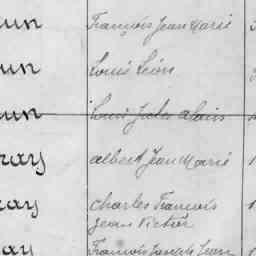 un François Jean Marie
un Louis Léon
un Louis Jules Alain
ray Albert Jean Marie 1
ray Charles François 1
Jean Victor
ray François Joseph Jean 1